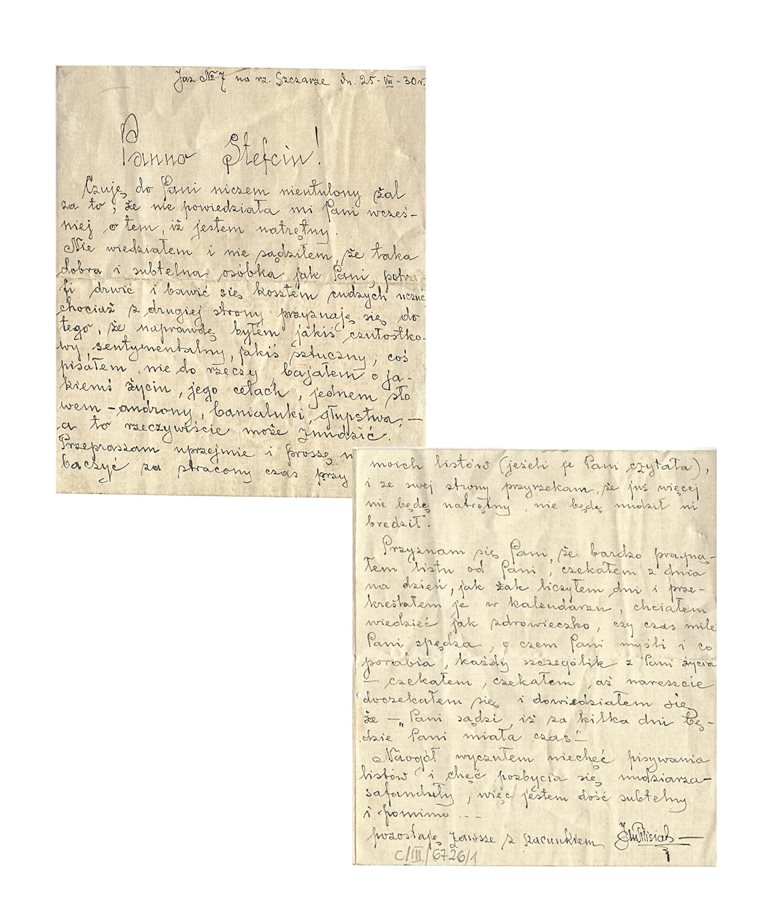 Jaz № 7 na rz. Szczarze dn. 25-VIII-30r.
Panno Stefciu!
Czuję do Pani niczem nieutulony żal
za to, że nie powiedziała mi Pani wcześ-
niej o tem, iż jestem natrętny.
Nie wiedziałem i nie sądziłem, że taka
dobra i subtelna osóbka jak Pani, potra-
fi drwić i bawić się kosztem cudzych uczuć
chociaż z drugiej strony przyznaję się do
tego, że naprawdę byłem jakiś czułostko-
wy, sentymentalny, jakiś sztuczny, coś
pisałem nie do rzeczy bajałem o ja-
kiemś życiu, jego celach, jednem sło
wem - androny, banialuki, głupstwa, -
a to rzeczywiście może znudzić.
Przepraszam uprzejmie i proszę
baczyć za stracony czas przy
moich listów (jeżeli je Pani czytała),
i ze swej strony przyrzekam, że już więcej
nie będę natrętny, nie będę nudził ni
bredził.
Przyznam się Pani, że bardzo pragną-
łem listu od Pani, czekałem z dnia
na dzień, jak żak liczyłem dni i prze-
kreślałem je w kalendarzu chciałem
wiedzieć jak zdrowieczko, czy czas mile
Pani spędza, o czem Pani myśli i co
porabia, każdy szczególik z Pani życia
- czekałem, czekałem, aż nareszcie
doczekałem się i dowiedziałem się
że - „Pani sądzi, iż za kilka dni bę-
dzie Pani miała czas"-
Naogół wyczułem niechęć pisywania
listów i chęć pozbycia się nudziarza-
safanduły, więc jestem dość subtelny
i pomimo ---
pozostaję zawsze z szacunkiem
C/III/6726/1